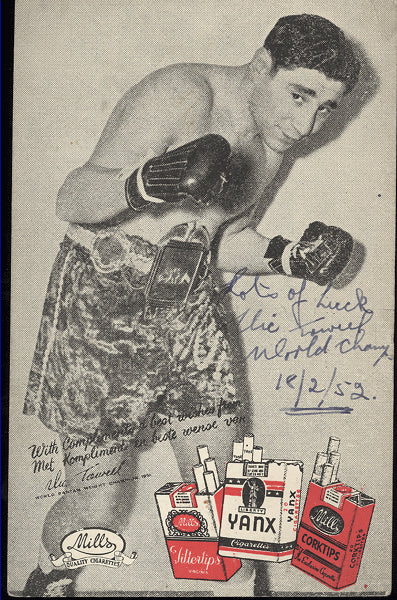 Lots of Luck
Vic Toweel
World Champ
18/2/52.
With Compliments & best wishes from
Met Kompliments en beste wense van
Vic Toweel
WORLD BANTAM WEIGHT CHAMPION 1951
Mills
QUALITY CIGARETTES
Mills
Filtertips
VIRGINIA
LIBERTY
YANX
Cigarettes
YANX
Mills
CORKTIPS
CORKTIPS